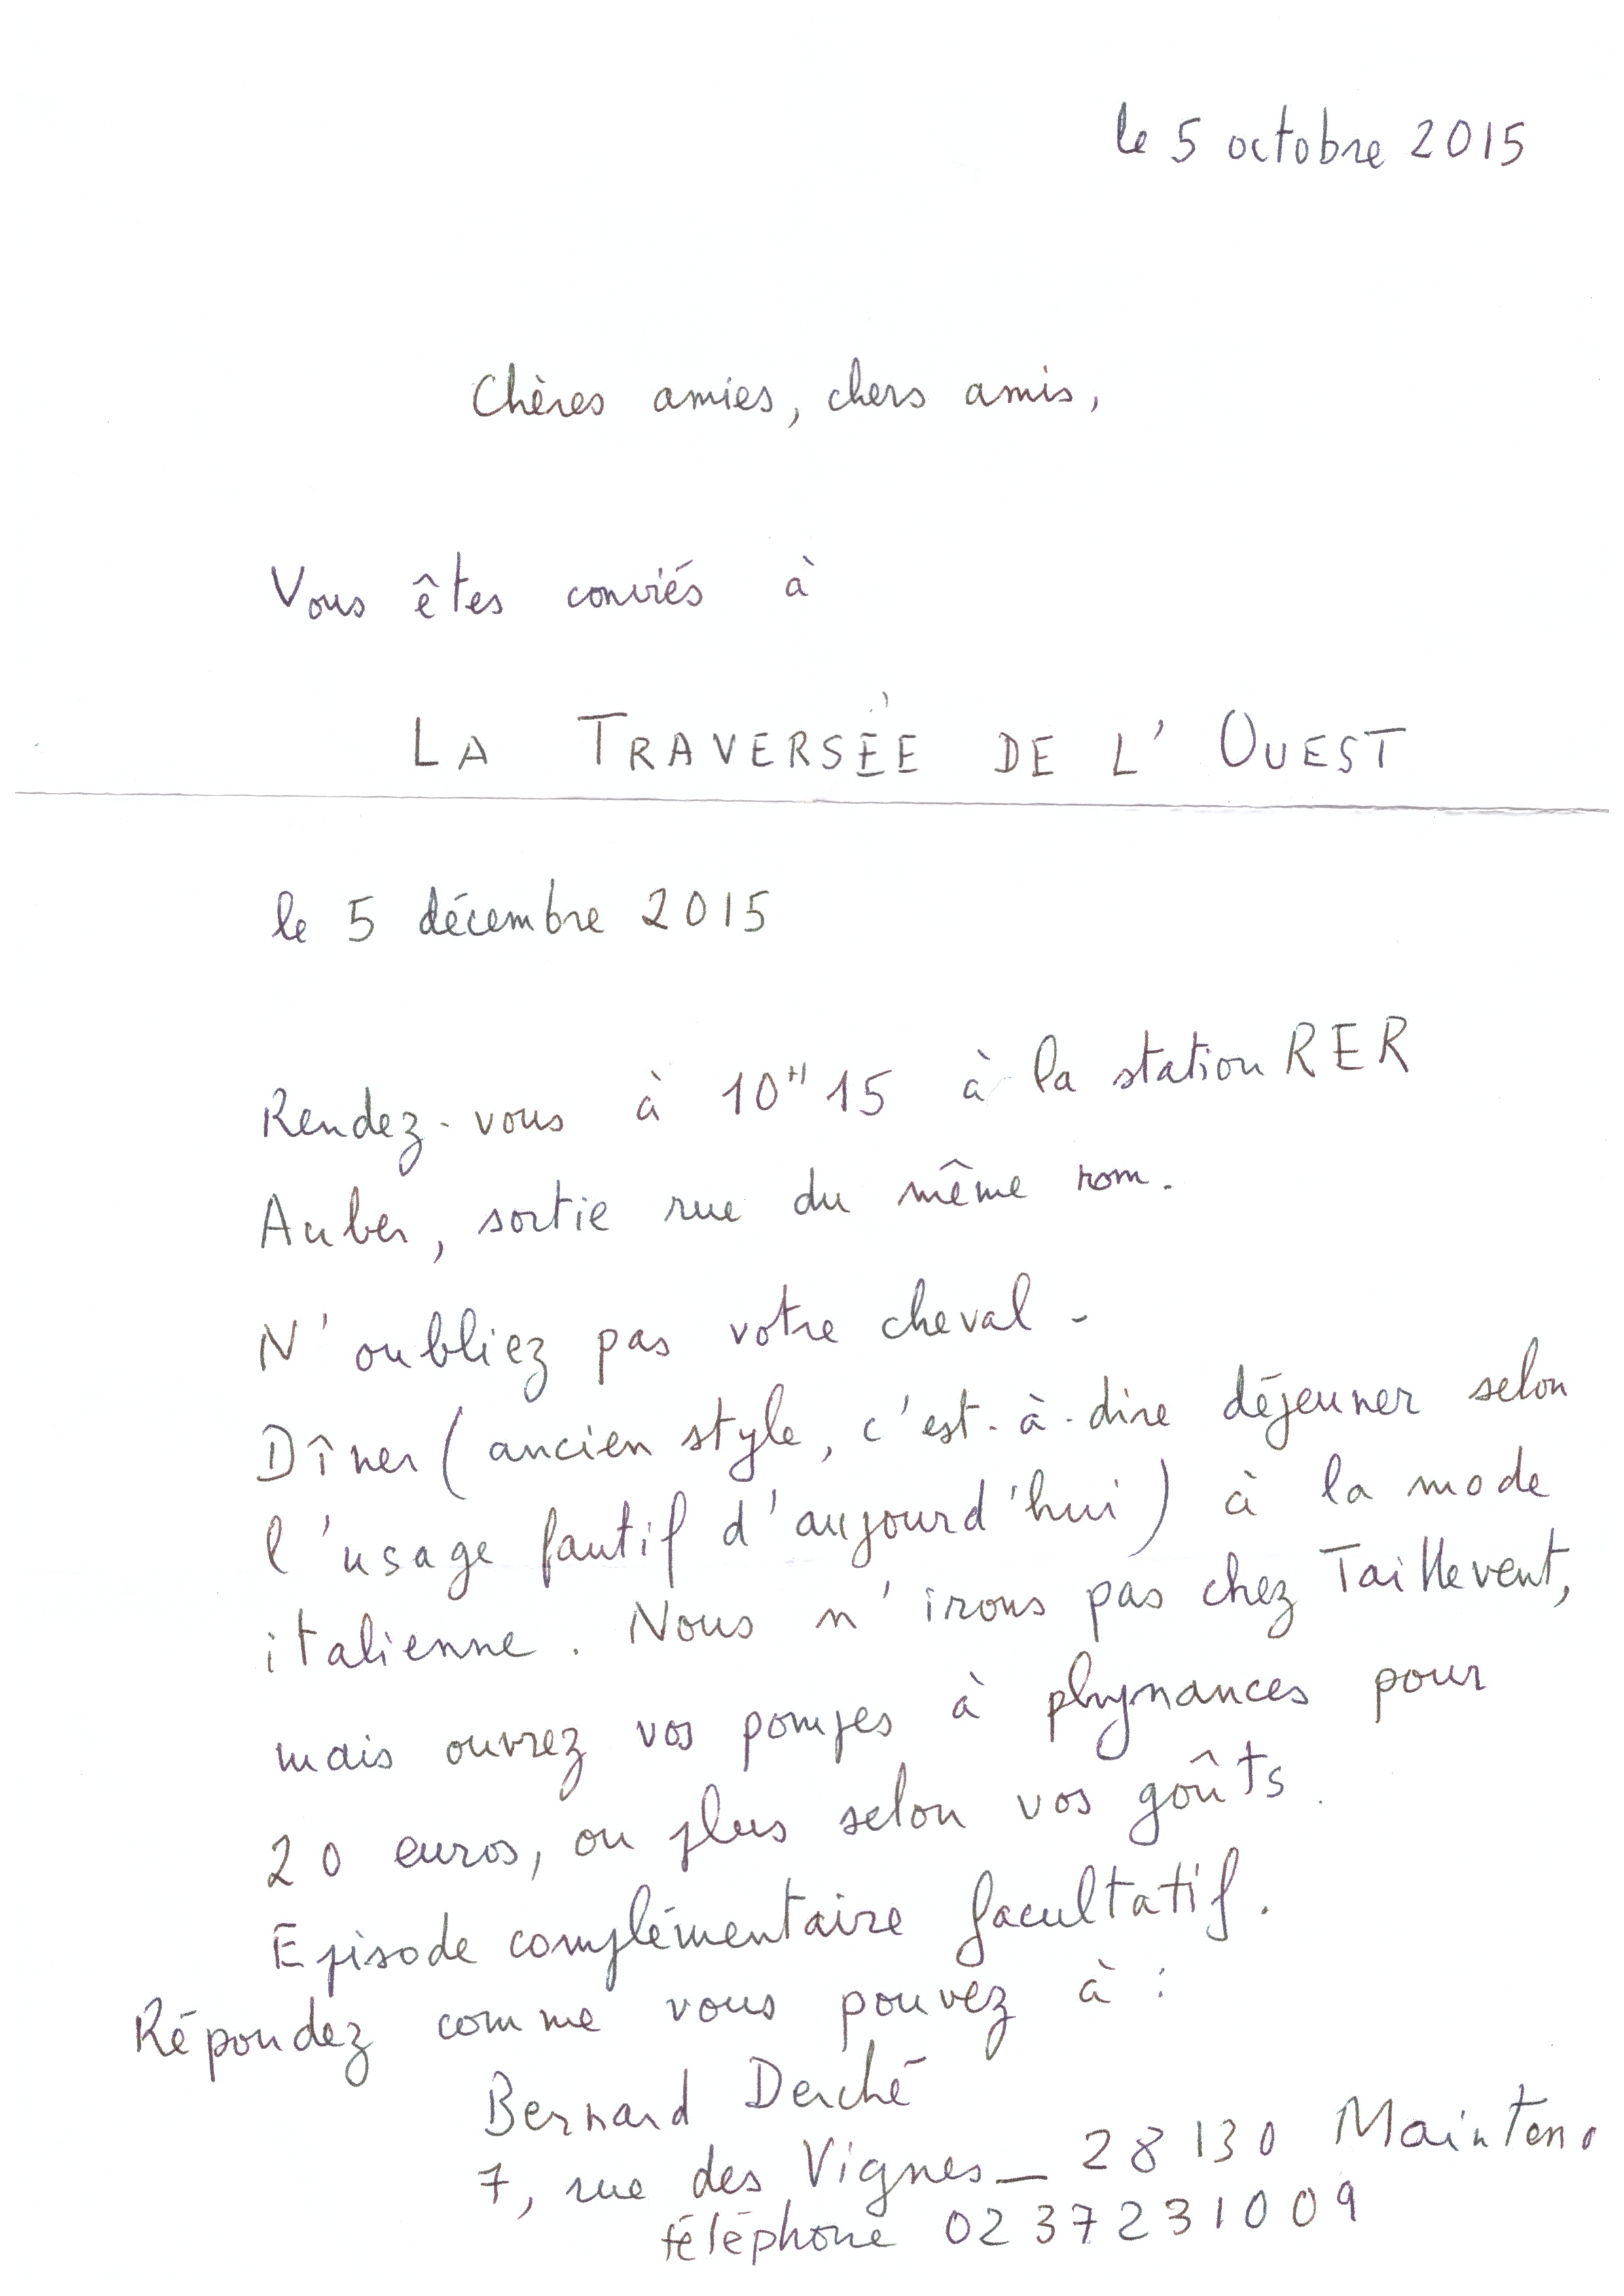 le 5 octobre 2015
Chères amies, chers amis,
Vous êtes conviés à
LA TRAVERSÉE DE L'OUEST
le 5 décembre 2015
Rendez-vous à 10H15 à la station RER
Auber, sortie rue du même nom.
N'oubliez pas votre cheval.
Dîner (ancien style, c'est-à-dire déjeuner selon
l'usage fautif d'aujourd'hui) à la mode
italienne. Nous n'irons pas chez Taillevent,
mais ouvrez vos pompes à phynances pour
20 euros, ou plus selon vos goûts.
Episode complémentaire facultatif.
Répondez comme vous pouvez à :
Bernard Derché
7, rue des Vignes _ 28130 Mainten
téléphone 0237231009